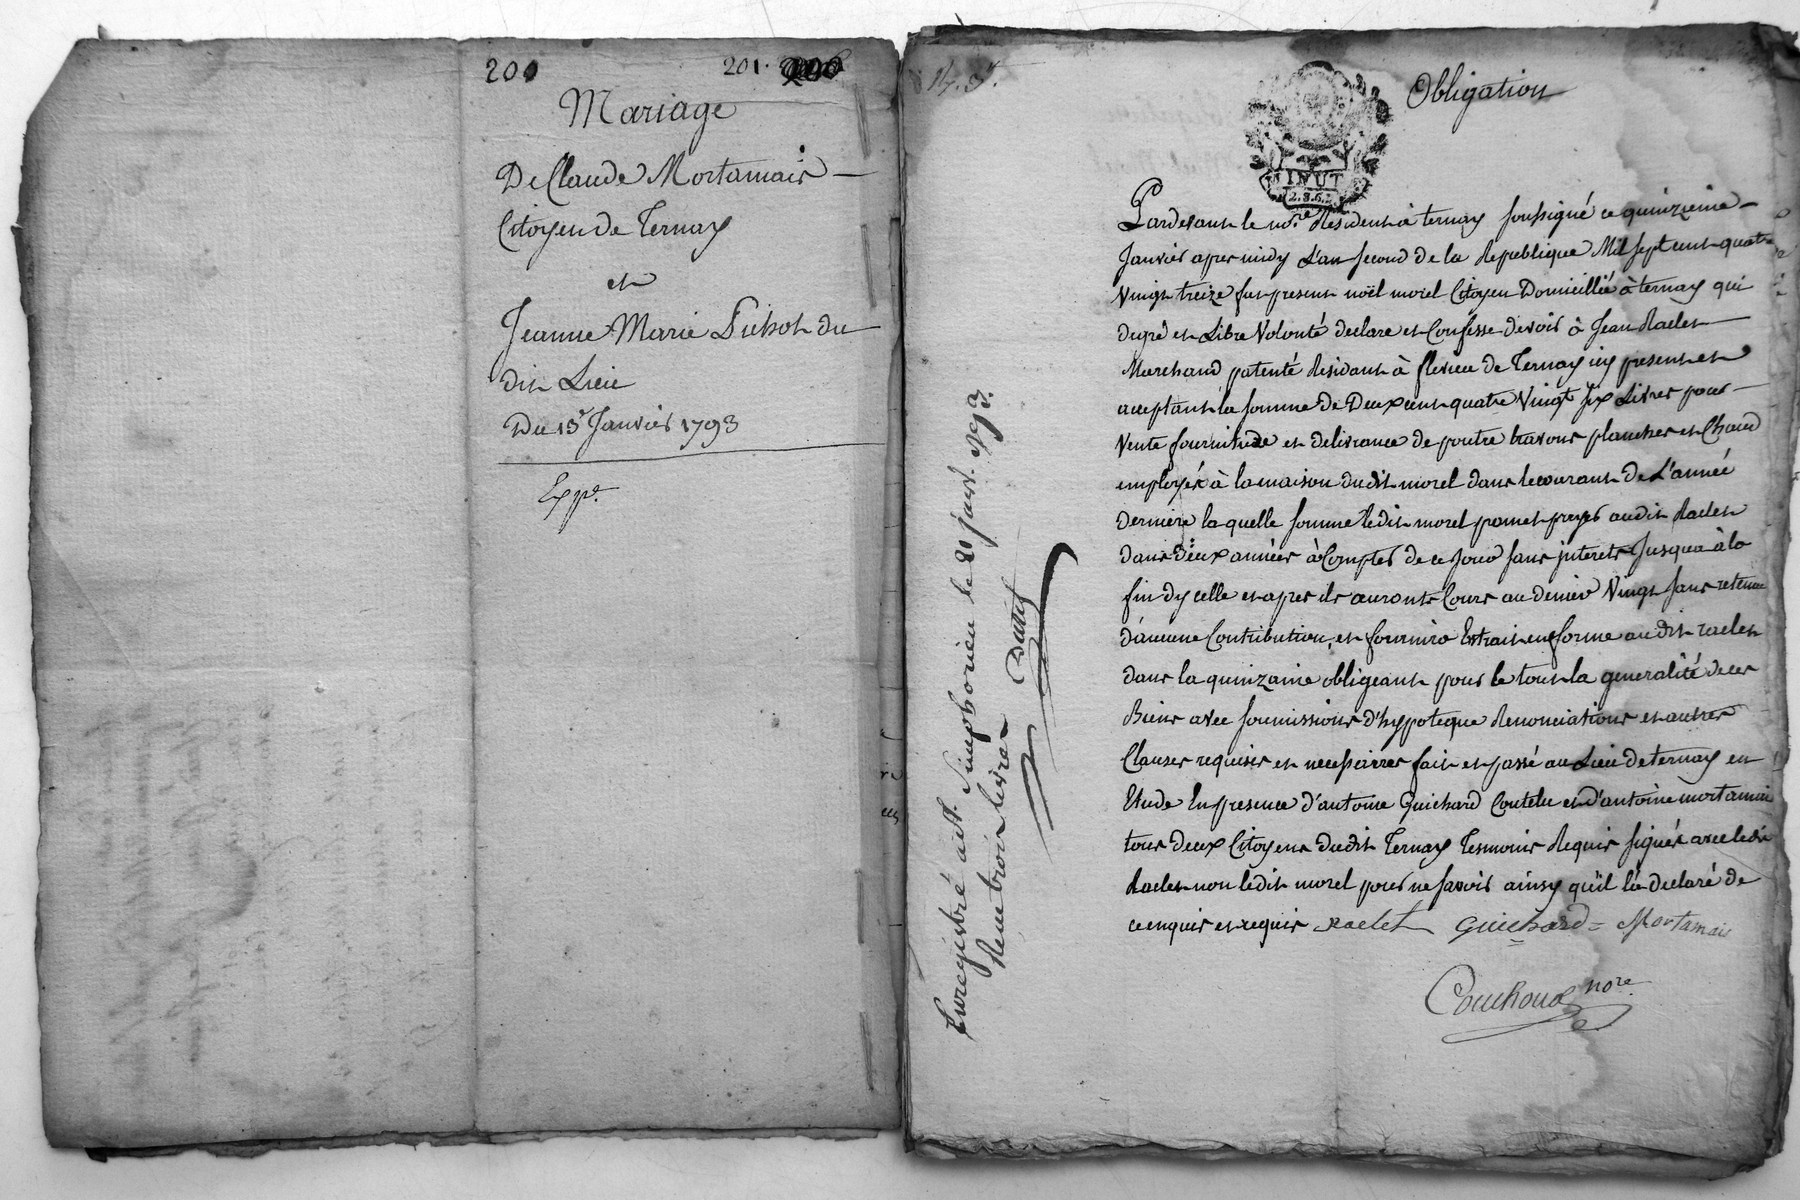 200
201.
Mariage
De Claude Mortamais
Citoyen de Ternay
et
Jeanne Marie Pichot du
dit Lieu
Du 15 Janvier 1793
Expe.
Obligation
MINUT
Pardevant le nore. Residant à ternay soussigné ce quinzieme
Janvier apres midy L'an second de la Republique Mil sept cent quatre
Vingt treize fut present noël morel Citoyen Domicillié à ternay qui
degré et Libre Volonté declare et Confesse devoir à Jean Raclet
Marchand patenté Residant à flevieu de Ternay icy present et
aceptant la somme de Deux cent quatre Vingt six Livres pour
Vente fourniture et delivrance de poutre travons planches et Chaud
employés à la maison dudit morel dans le courant De L'année
derniere la quelle somme ledit morel promet payer audit Raclet
dans deux années à Compter de ce jour sans interets Jusqua à la
fin dycelle et apres ils auronts Cours au denier Vingt sans retenue
d'aucune Contribution, et fournira Extrait en forme au dit raclet
dans la quinzaine obligeant pour le tout la generalité de ces
Biens avec soumissions d'hypoteque Renonciations et autres
Clauses requises et necessaires fait et passé au Lieu de ternay en
Etude En presence d'antoine Guichard Coutelu et d'antoine mortamais
tous deux Citoyens dudit Ternay Tesmoins Requis signés avec ledit
Raclet non ledit morel pour ne savoir ainsy qu'il la declaré de
ce enquis et requis Raclet Guichard = Mortamais
Couchoud nore.
Enregistré à St. Simphorien le 21 janv. 1793.
Reçu trois livres